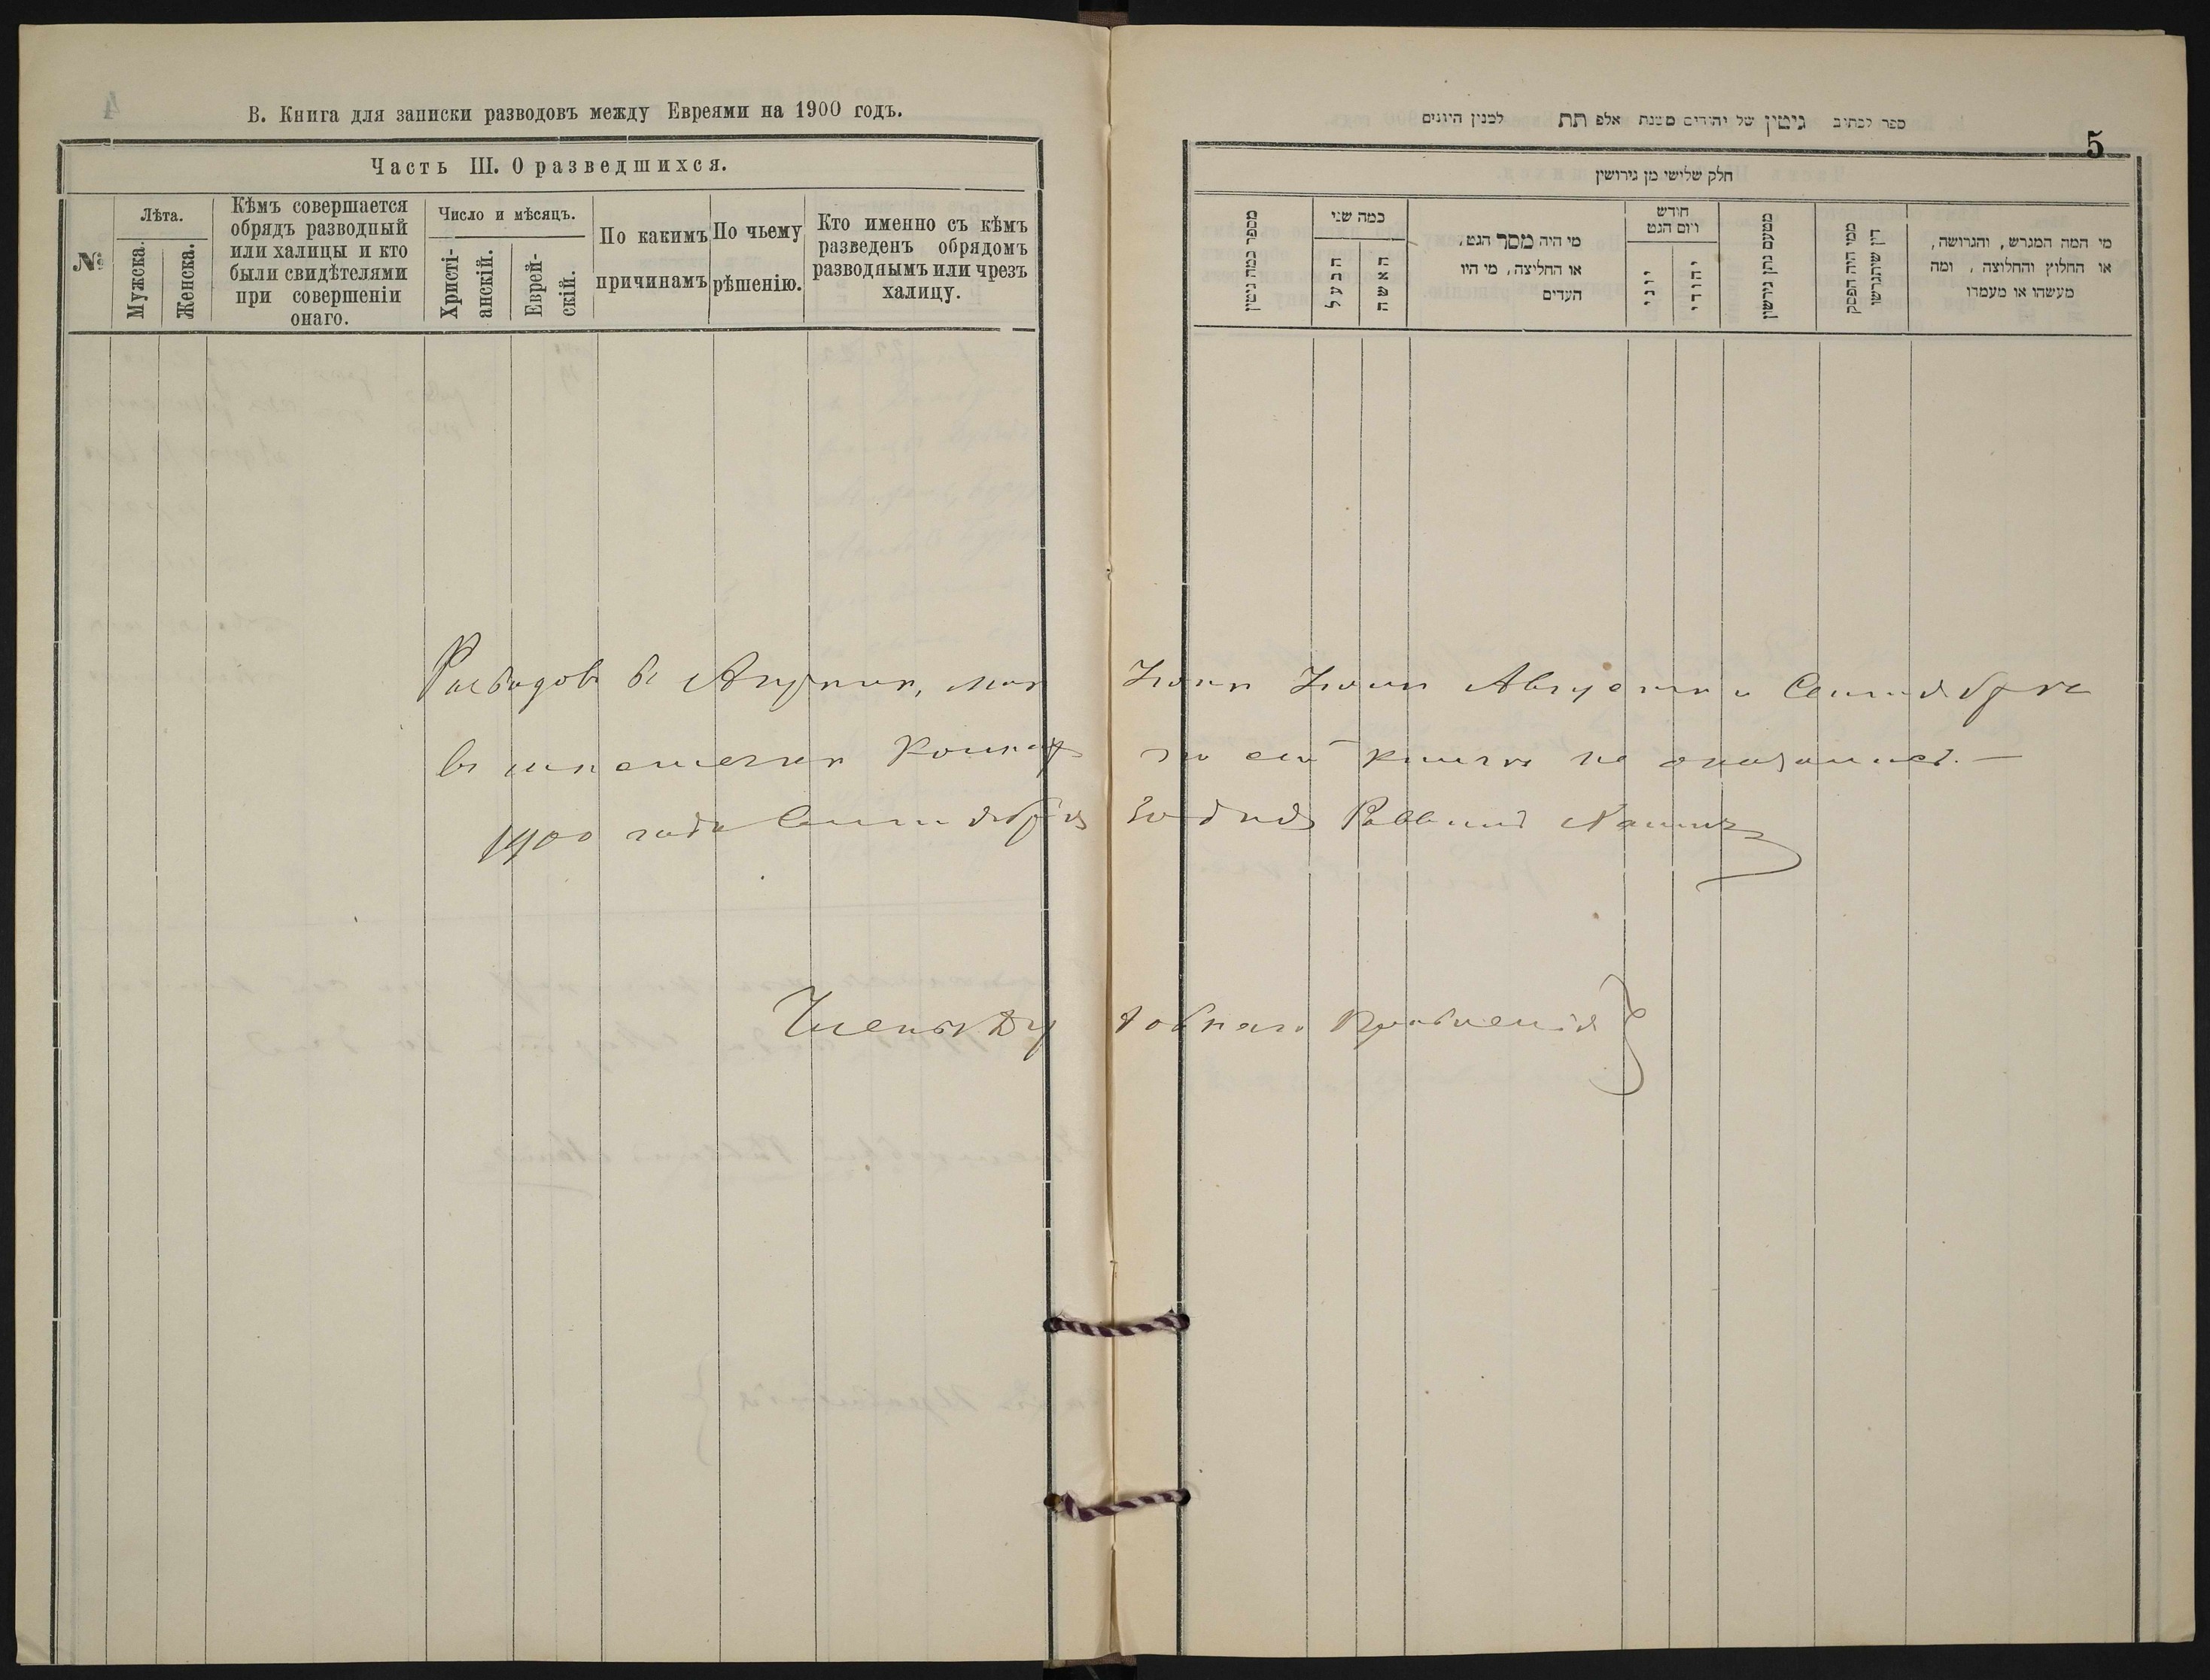 В. Книга для записки разводовъ между Евреями на 1900 годъ.
Часть III. О разведшихся.
№
Лѣта.
Мужска.
Женска.
Кѣмъ совершается
обрядъ разводный
или халицы и кто
были свидѣтелями
при совершеніи
онаго.
Число и мѣсяцъ.
Христі-
анскій.
Еврей-
скій.
По какимъ
причинамъ
По чьему
рѣшенію.
Кто именно съ кѣмъ
разведенъ обрядомъ
разводнымъ или чрезъ
халицу.
ספר לכתוב גיטין של יהודים משנת אלף תת למנין היונים
5
חלק שלישי מן גירושין
מספר כמה גיטין
כמה שני
הבעל
האשה
מי היה מסר הגט,
או החליצה, מי היו
העדים
חודש
ויום הגט
יוני
יהודי
מטעם נתן גירושין
ממי היה הפסק
דין שיתגרשו
מי המה המגרש, והגרושה,
או החלוץ והחלוצה, ומה
מעשהו או מעמדו
Разводовъ въ Іюнѣ Іюлѣ Августѣ и Сентябрѣ
въ по сей книгѣ не оказалось. —
1900 года Сентября 30 дня Раввинъ
Члены Духовнаго Правленія }